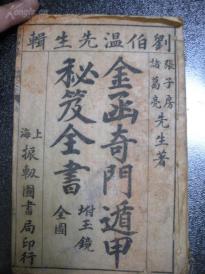 劉伯温先生輯
張子房
諸葛亮
先生著
金函奇門遁甲
秘笈全書
坿玉鏡
全圖
上海
振靷圖書局印行